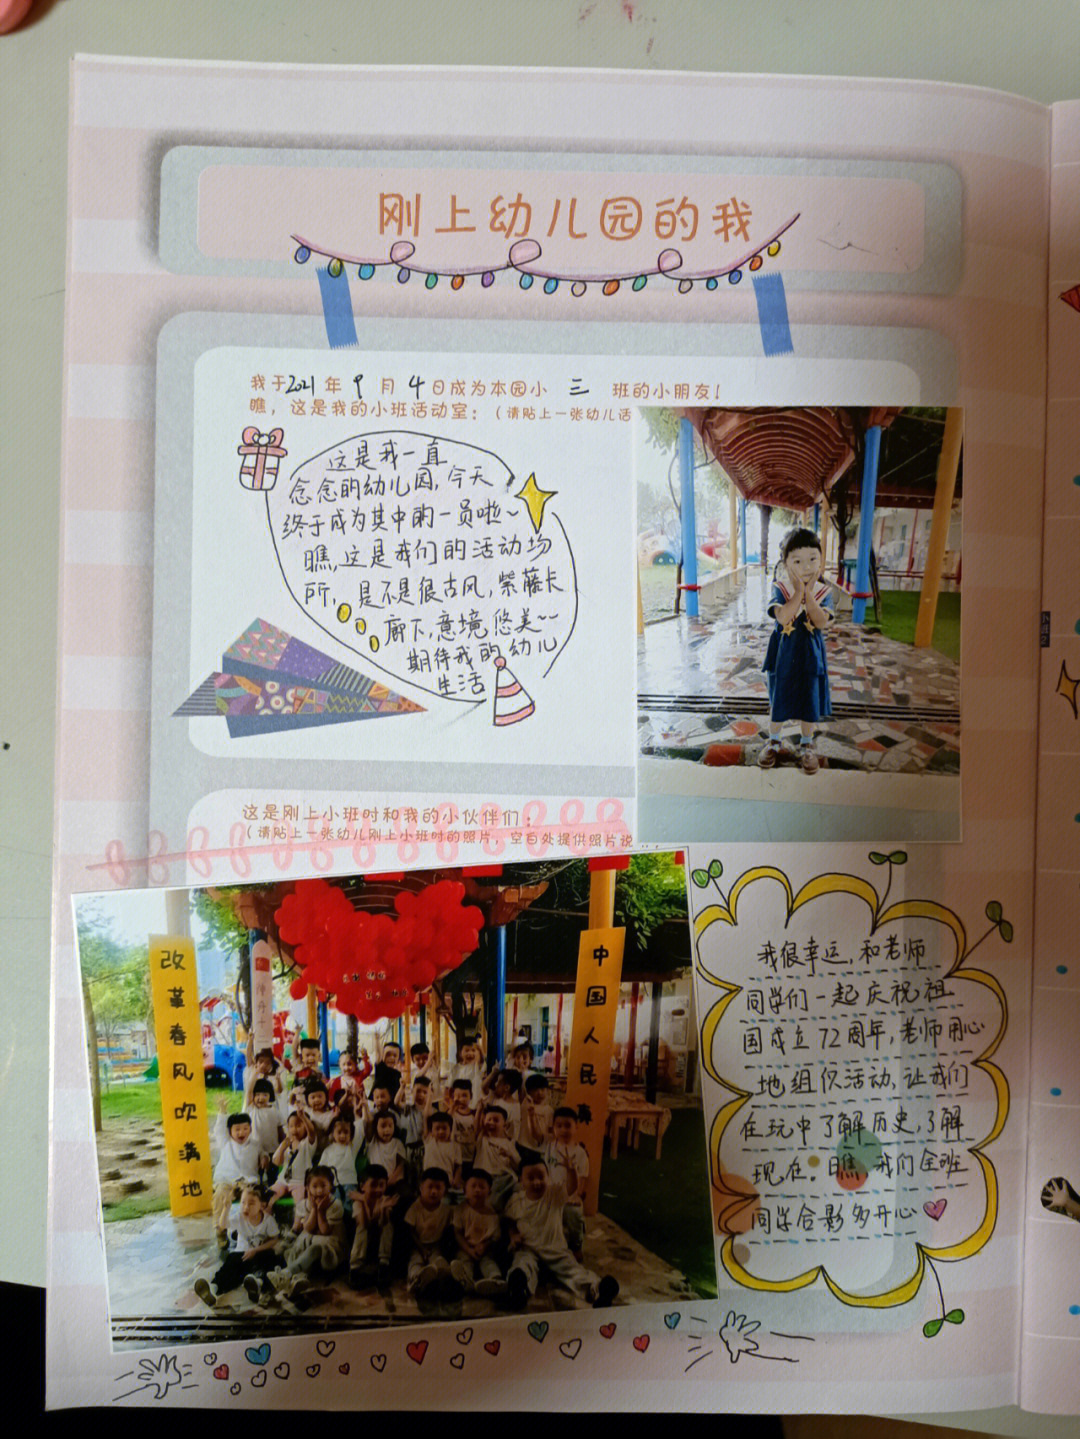 刚上幼儿园的我
我于2021年9月4日成为本园小三班的小朋友！
瞧，这是我的小班活动室：（请贴上一张幼儿活
这是我一直
念念的幼儿园，今天
终于成为其中的一员啦~
瞧，这是我们的活动场
所，是不是很古风，紫藤长
廊下，意境悠美~~
期待我的幼儿
生活
这是刚上小班时和我的小伙伴们：
（请贴上一张幼儿刚上小班时的照片，空白处提供照片说
改革春风吹满地
中国人民真
我很幸运，和老师
同学们一起庆祝祖
国成立72周年，老师用心
地组织活动，让我们
在玩中了解历史，了解
现在。瞧，我们全班
同学合影多开心